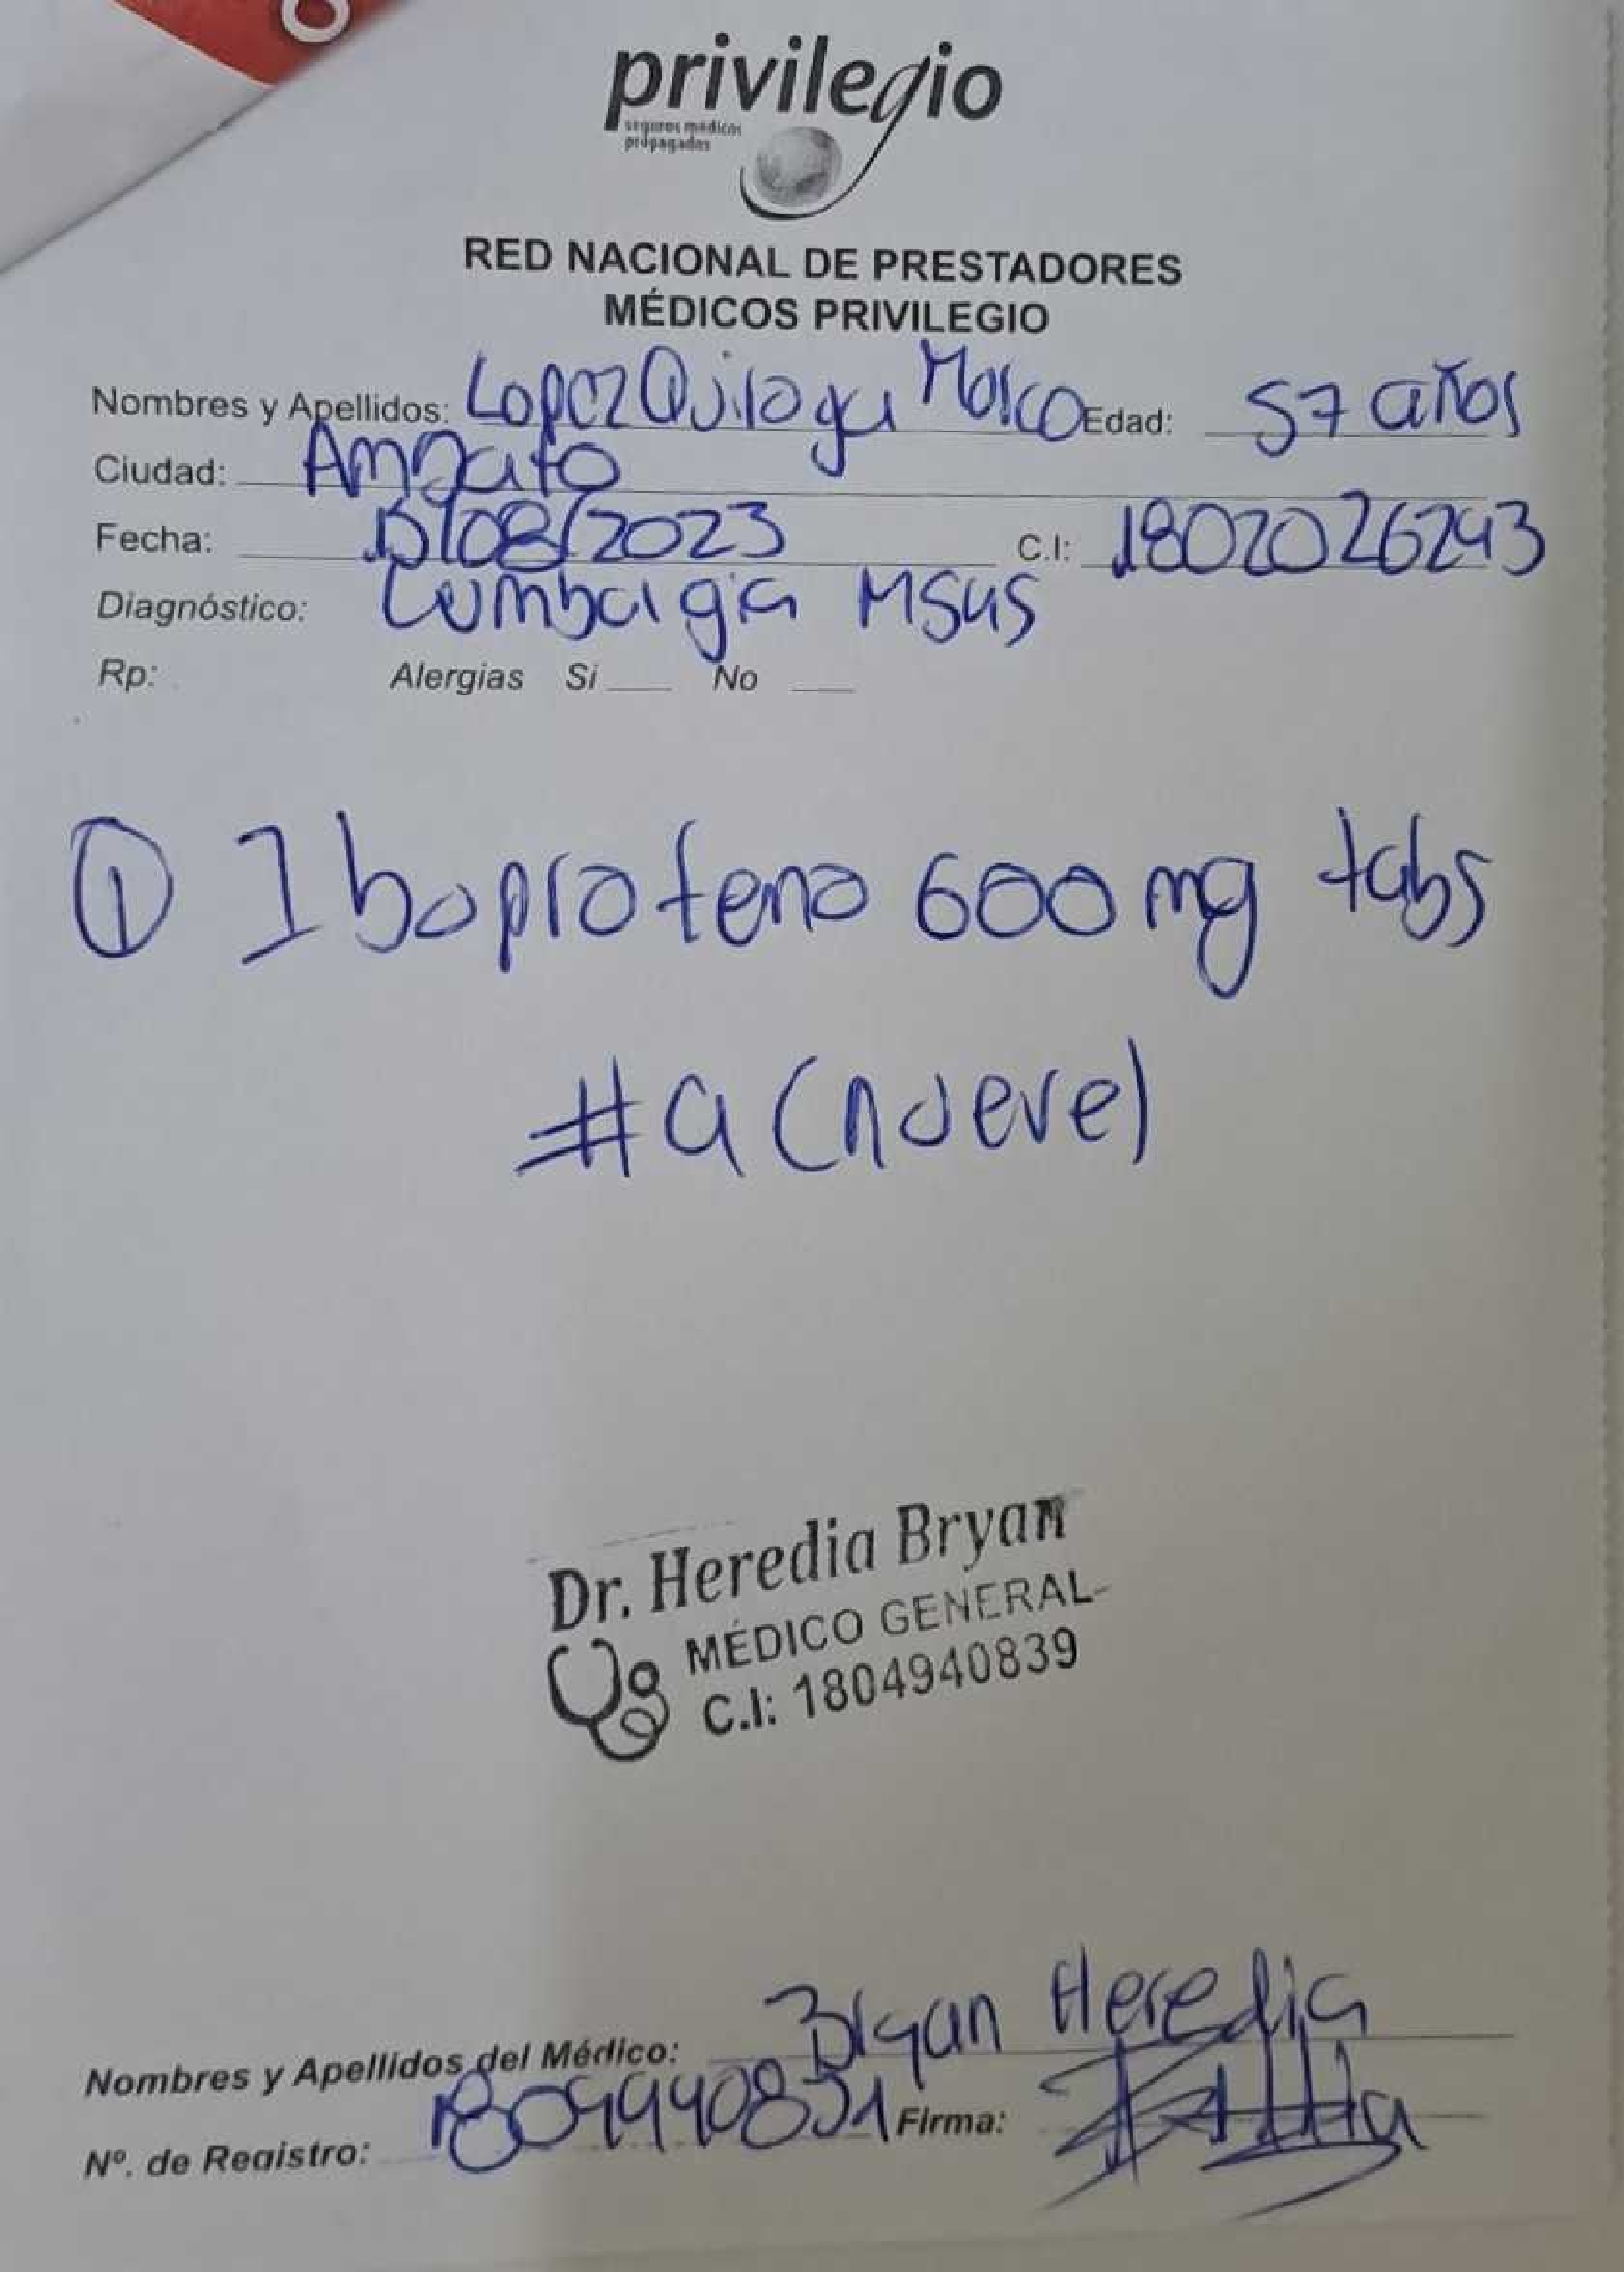 privilegio
seguros médicos
prepagados
RED NACIONAL DE PRESTADORES
MÉDICOS PRIVILEGIO
Nombres y Apellidos: Lopez Quiloga Marco Edad: 57 años
Ciudad: Ambato
Fecha: 15/08/2023 C.I: 1802026243
Diagnóstico: Lumbalgia MSUS
Rp: Alergias Si ___ No ___
① Iboprofeno 600 mg tabs
#9 (nueve)
Dr. Heredia Bryan
MÉDICO GENERAL
C.I: 1804940839
Nombres y Apellidos del Médico: Bryan Heredia
Nº. de Registro: Firma: